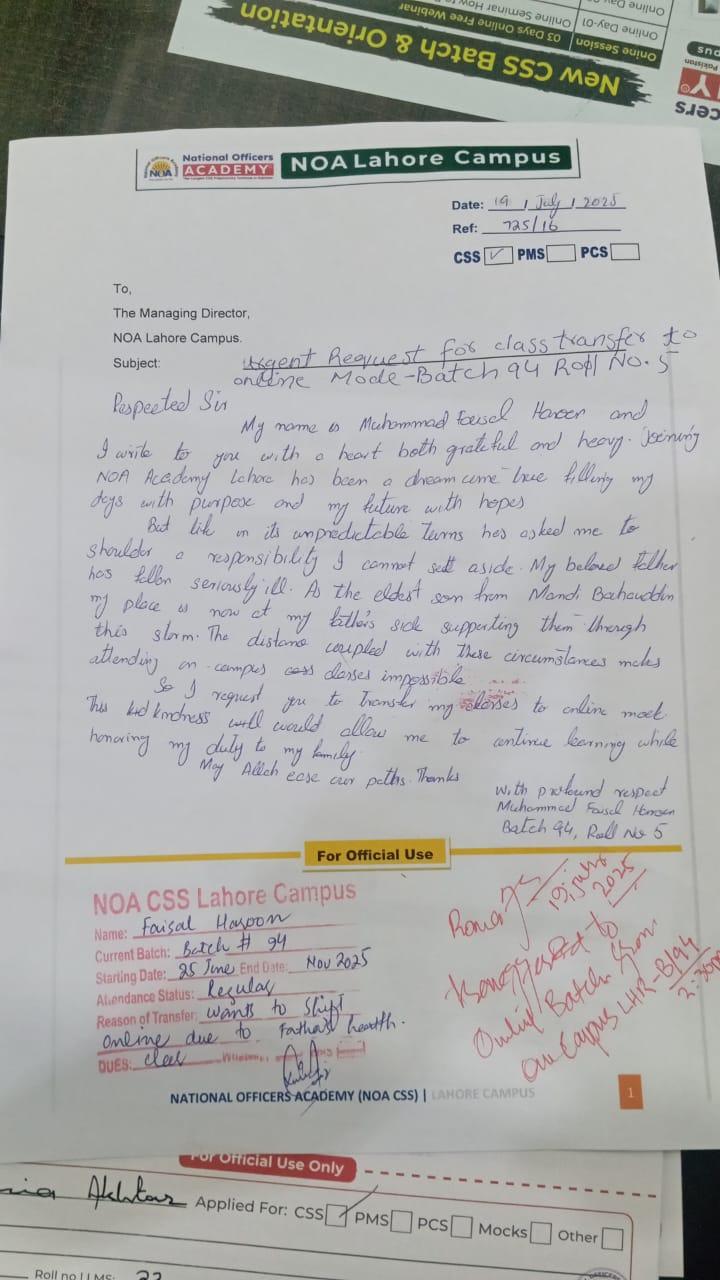 New CSS Batch & Orientation
Onine Session
03 Days Online Free Webinar
Online Day-01
Online Seminar How to
Online
cers
Y
Pakistan
NOA
National Officers
ACADEMY
NOA Lahore Campus
Date: 19 / July / 2025
Ref: 725/16
CSS ✓ PMS PCS
To,
The Managing Director,
NOA Lahore Campus.
Subject: Urgent Request for class transfer to
online Mode-Batch 94 Roll No. 5
Respected Sir
My name is Muhammad Faisal Haroon and
I write to you with a heart both grateful and heavy. Joining
NOA Academy Lahore has been a dream come true filling my
days with purpose and my future with hopes
But life in its unpredictable turns has asked me to
shoulder a responsibility I cannot sett aside. My beloved father
has fallen seriously ill. As the eldest son from Mandi Bahauddin
my place is now at my father's side supporting them through
this storm. The distance coupled with these circumstances makes
attending on campus classes impossible
So I request you to transfer my classes to online mode.
This kindness would allow me to continue learning while
honoring my duty to my family.
May Allah ease our paths. Thanks
With profound respect
Muhammad Faisal Haroon
Batch 94, Roll No 5
For Official Use
NOA CSS Lahore Campus
Name: Faisal Haroon
Current Batch: Batch # 94
Starting Date: 25 June End Date: Nov 2025
Attendance Status: Regular
Reason of Transfer: wants to Shift
online due to Father health.
DUES: clear
19 July
2025
Transferred to
Online Batch from
On Campus LHR-B/94
2:30pm
NATIONAL OFFICERS ACADEMY (NOA CSS) | LAHORE CAMPUS
1
For Official Use Only
Akhtar Applied For: CSS PMS PCS Mocks Other
Roll no LMS: 22